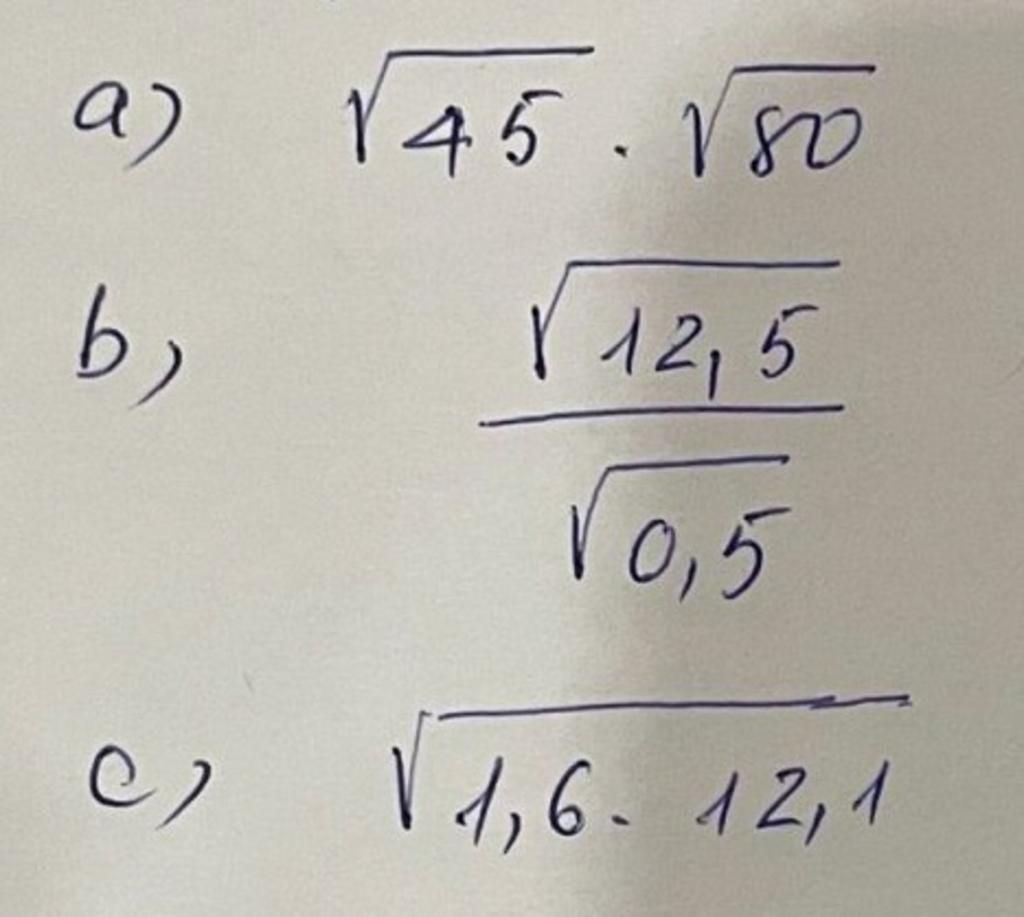 a) √45 . √80
b, √12,5 / √0,5
c, √1,6 . 12,1